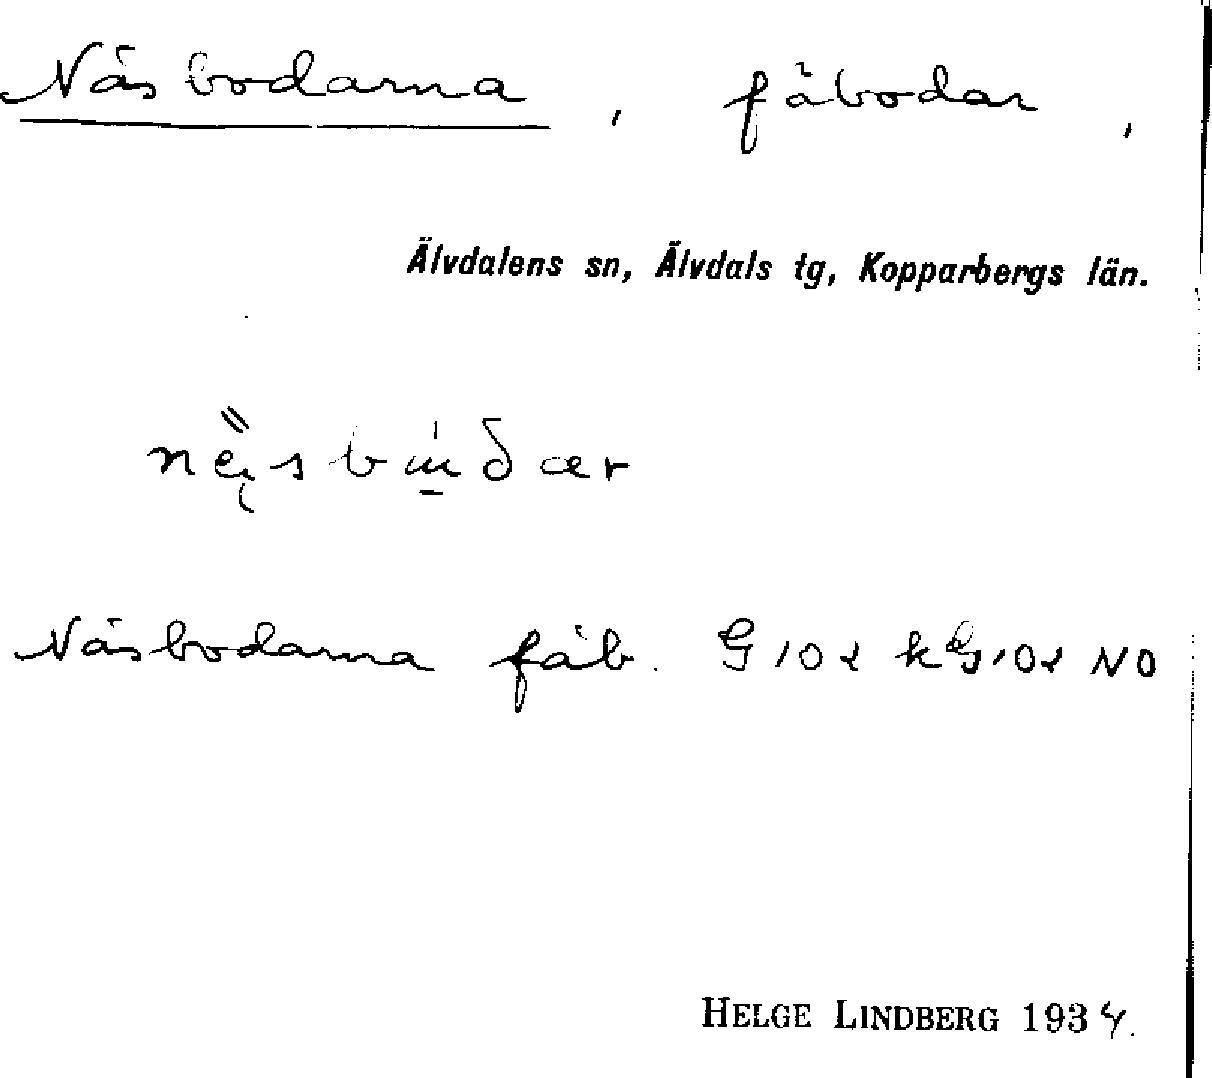 Näsbodarna, fäbodar,
Älvdalens sn, Älvdals tg, Kopparbergs län.
Näsbodarna fäb. G 102 k G 102 NO
HELGE LINDBERG 1934.